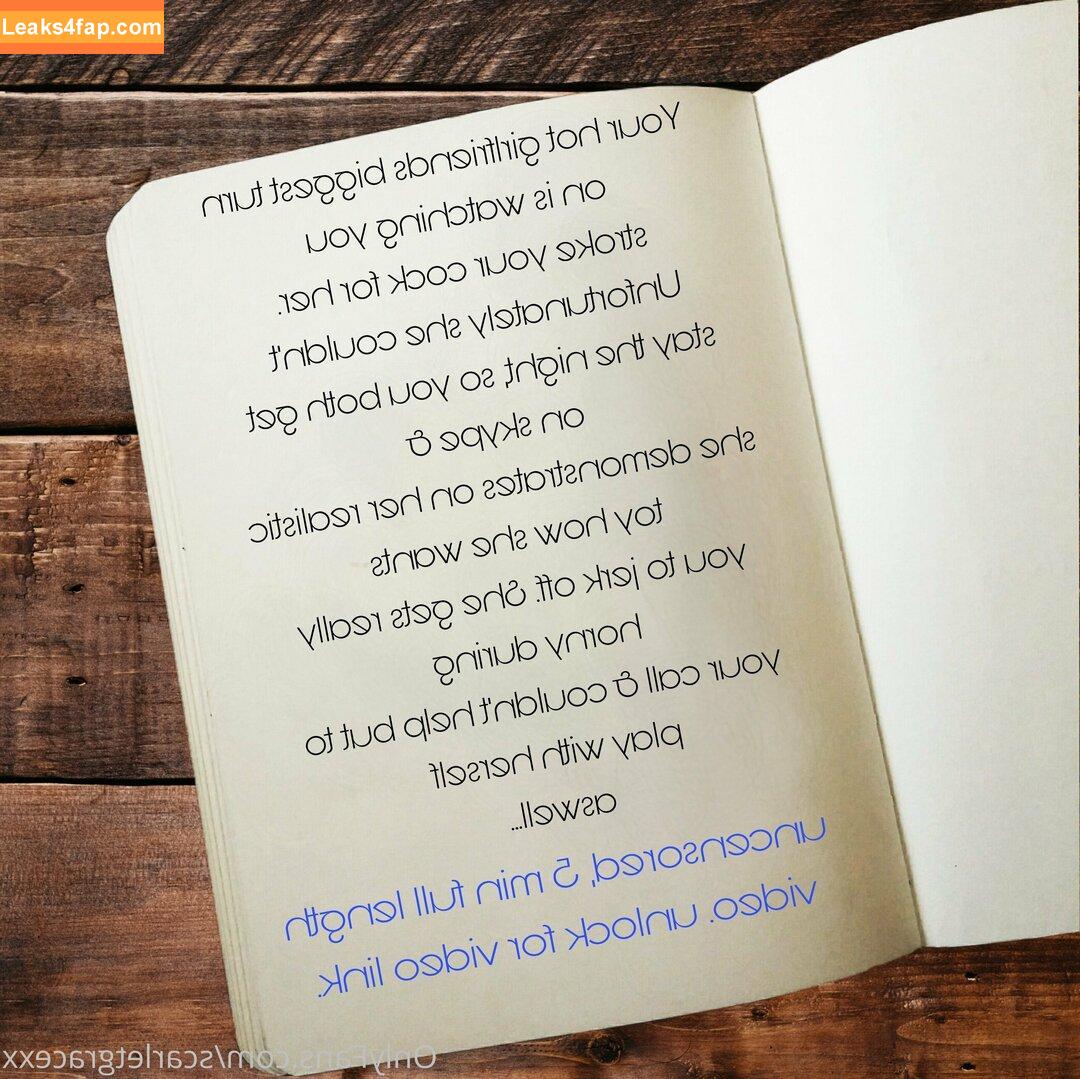 Leaks4fap.com
Your hot girlfriends biggest turn
on is watching you
stroke your cock for her.
Unfortunately she couldn't
stay the night, so you both get
on skype &
she demonstrates on her realistic
toy how she wants
you to jerk off. She gets really
horny during
your call & couldn't help but to
play with herself
aswell...
uncensored, 5 min full length
video. unlock for video link.
OnlyFans.com/scarletgracexx